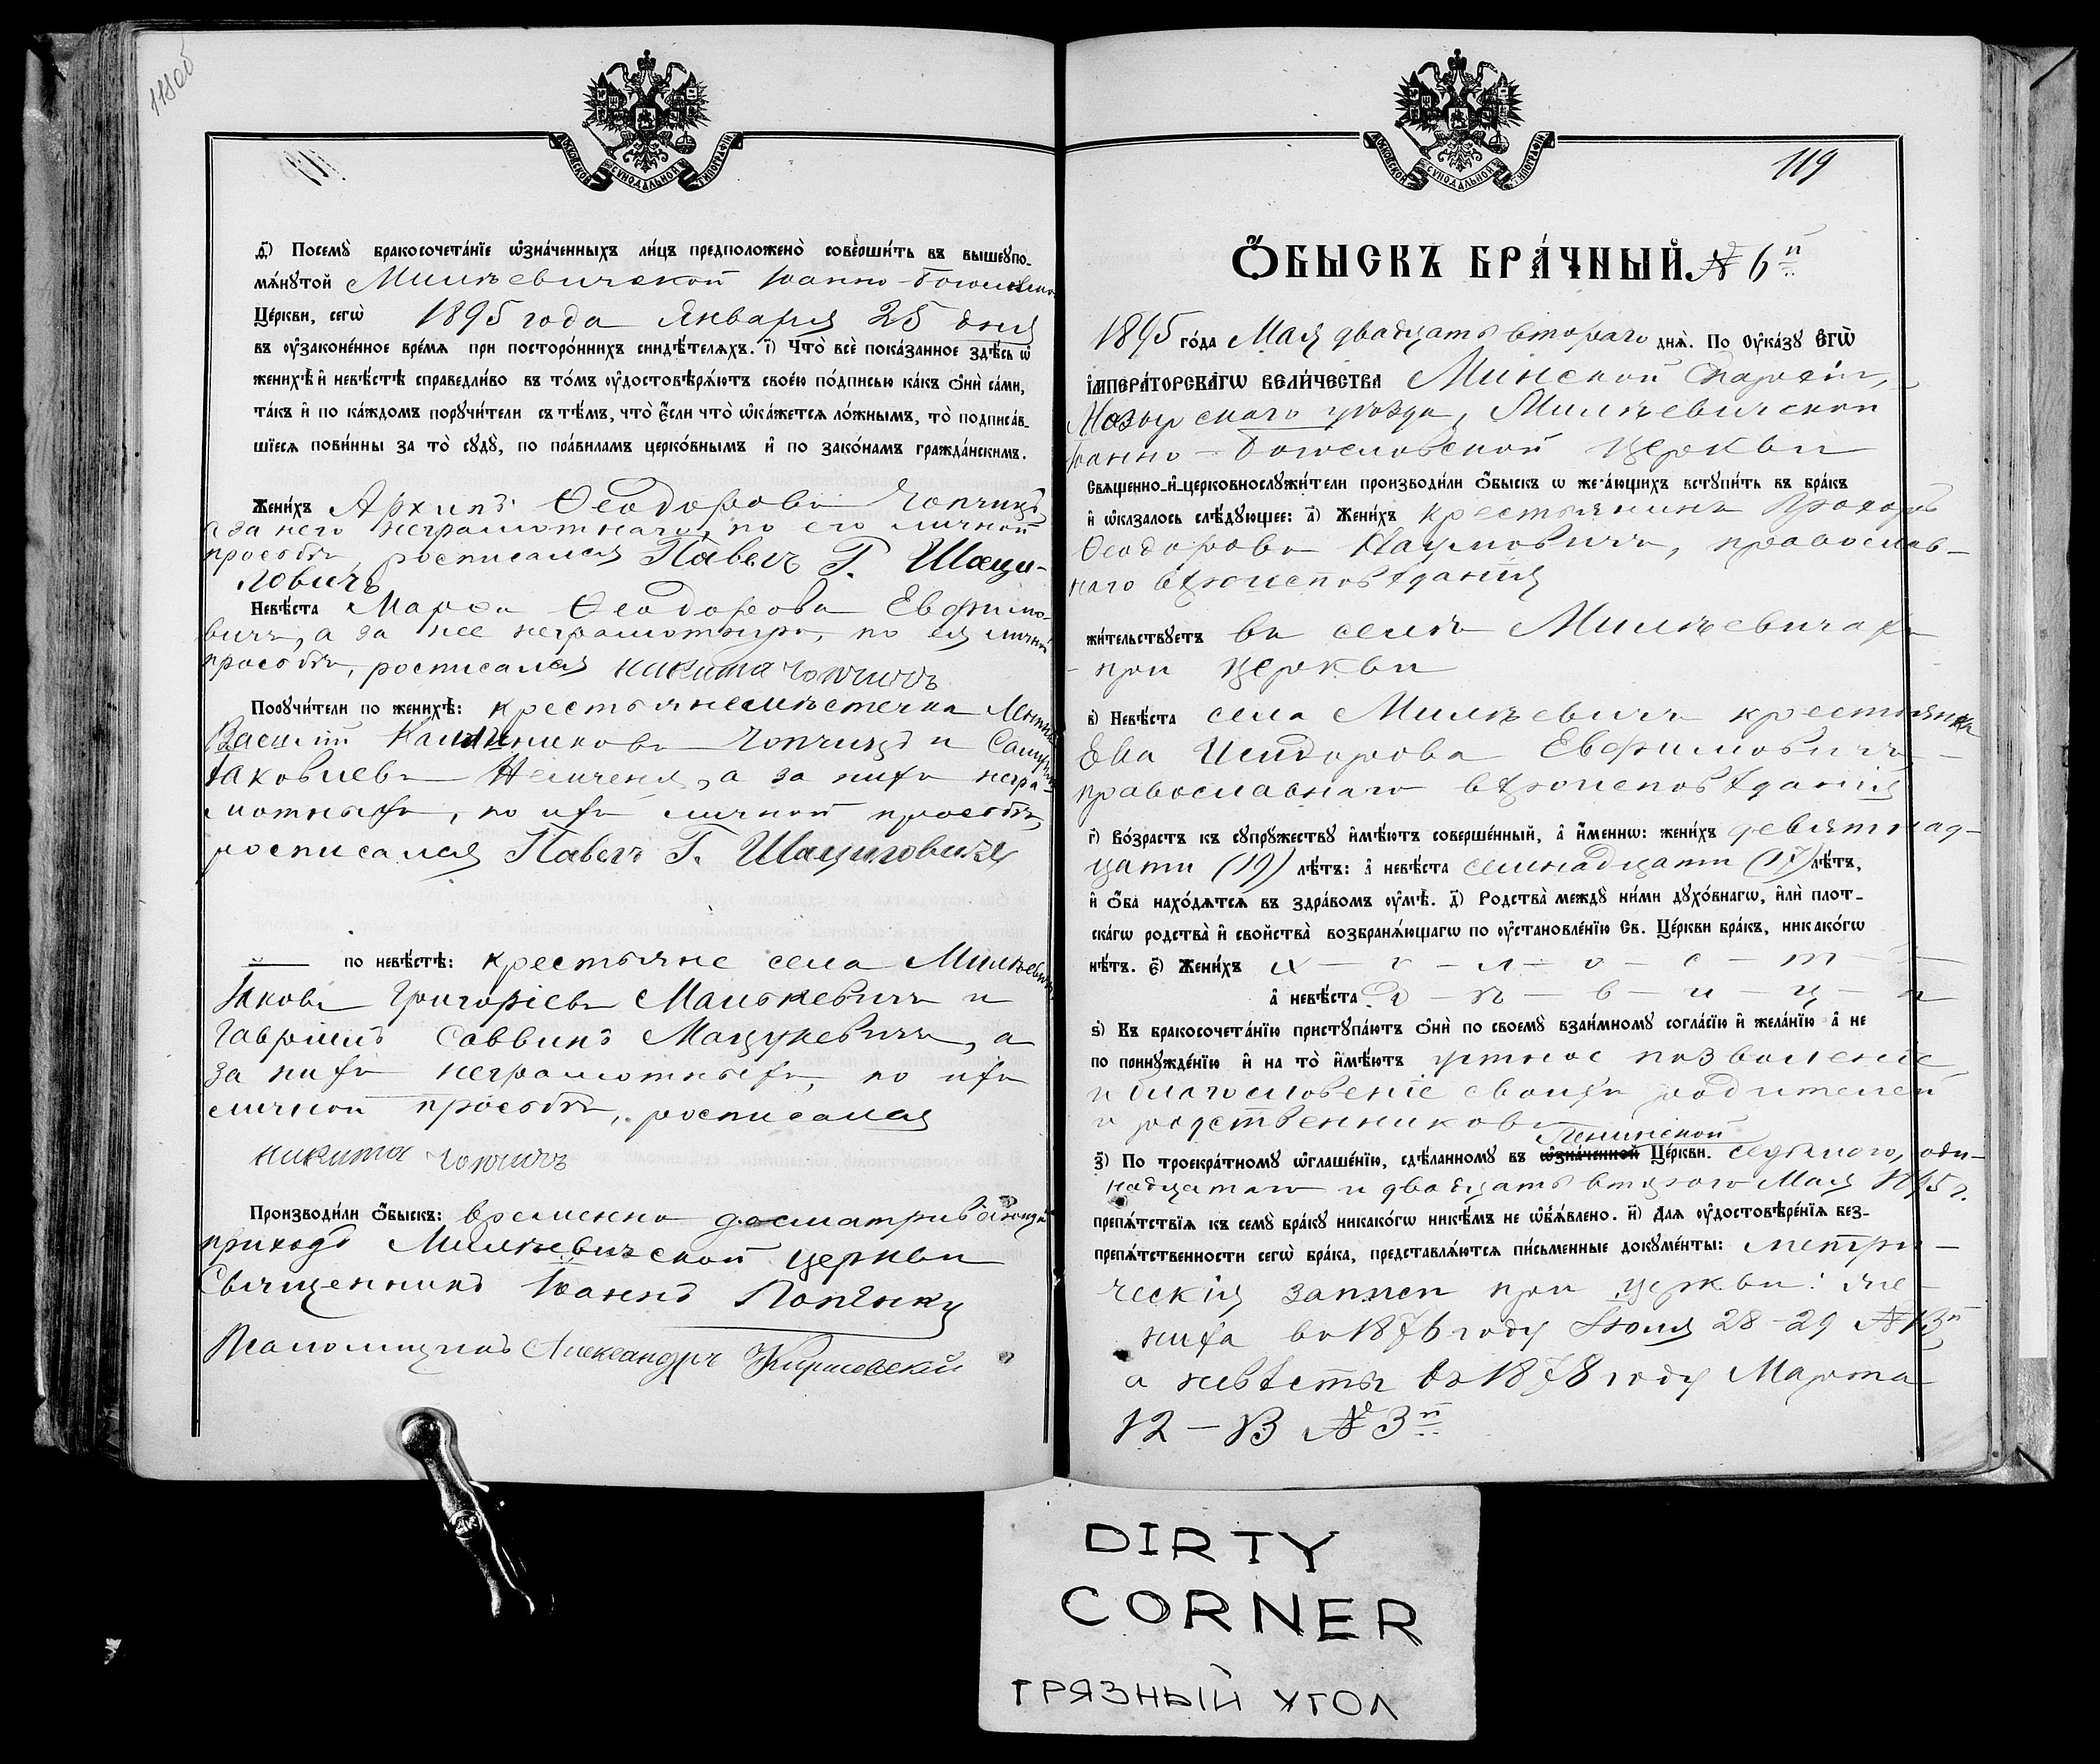 118об
МОСКОВСКОЙ СѴНОДАЛЬНОЙ ТИПОГРАФІИ
д҃) Посемꙋ̀ бракосочета́нїе ѡ҆зна́ченныхъ ли́цъ предположено̀ соверши́ть въ вышеꙋпо-
мѧ́нꙋтой Милѣевичской Іоанно-Богословской
Це́ркви, сегѡ̀ 1895 года Января 25 дня
въ ᲂу҆зако́ненное вре́мѧ при посторо́ннихъ свидѣ́телѧхъ. і҃) Что̀ всѐ пока́занное здѣ́сь ѡ҆
женихѣ̀ и҆ невѣ́стѣ справедли́во въ то́мъ ᲂу҆достовѣрѧ́ютъ свое́ю по́дписью ка́къ ѻ҆нѝ са́ми,
та́къ и҆ по ка́ждомъ порꙋчи́тели съ тѣ́мъ, что̀ є҆́сли что̀ ѡ҆ка́жетсѧ ло́жнымъ, то̀ подписа́в-
шїесѧ пови́нны за то̀ сꙋдꙋ̀, по пра́виламъ церко́внымъ и҆ по зако́намъ гражда́нскимъ.
Жени́хъ Архипъ Ѳеодоровъ Чопчицъ
а за него неграмотнаго, по его личной
просьбѣ, росписался Павелъ Г. Шаци-
ловичъ
Невѣ́ста Марѳа Ѳеодорова Евфимо-
вичъ, а за нее неграмотную, по ея личной
просьбѣ, росписался никита чопчицъ
Порꙋчи́тели по женихѣ̀: крестьяне мѣстечка
Василій Чопчицъ и
Іаковлевъ а за нихъ негра-
мотныхъ, по ихъ личной просьбѣ
росписался Павелъ Г. Шациловичъ
по невѣ́стѣ: крестьяне села Милѣевичъ
Іаковъ Григоріевъ Малькевичъ и
Гавріилъ Саввинъ Мацукевичъ, а
за нихъ неграмотныхъ, по ихъ
личной просьбѣ, росписался
никита чопчицъ
Производи́ли ѻ҆́быскъ: временно досматривающій
приходъ Милѣевичской церкви
Священникъ Іоаннъ
Псаломщикъ Александръ
МОСКОВСКОЙ СѴНОДАЛЬНОЙ ТИПОГРАФІИ
119
Ѻ҆́БЫСКЪ БРА́ЧНЫЙ № 6й
1895 го́да Мая двадцать втораго днѧ̀. По ᲂу҆ка́зꙋ є҆гѡ̀
і҆мпера́торсвагѡ вели́чества Минской Епархіи,
Мозырскаго уѣзда, Милѣевичской
Іоанно-Богословской церкви
свѧщенно-и҆-церковнослꙋжи́тели производи́ли ѻ҆́быскъ ѡ же а́ющихъ встꙋпи́ть въ бра́къ
и҆ ѡ҆каза́лось слѣ́дꙋющее: а҃) Жени́хъ крестьянинъ Прохоръ
Ѳеодоровъ Наумовичъ, православ-
наго вѣроисповѣданія
жи́тельствꙋетъ въ селѣ Милѣевичахъ
при церкви
в҃) Невѣ́ста села Милѣевичъ крестьянка
Ева Исидорова Евфимовичъ,
православнаго вѣроисповѣданія
г҃) Во́зрастъ къ сꙋпрꙋ́жествꙋ и҆мѣ́ютъ соверше́нный, а҆ и҆́меннѡ: жени́хъ девятнад-
цати (19) лѣ́тъ: а҆ невѣ́ста семнадцати (17) лѣ́тъ,
и҆ ѻ҆́ба нахо́дѧтсѧ въ здра́вомъ ᲂу҆мѣ̀. д҃) Родства̀ междꙋ̀ ни́ми дꙋхо́внагѡ, и҆лѝ плот-
ска́гѡ родства̀ и҆ сво́йства̀ возбранѧ́ющагѡ по ᲂу҆становле́нїю Св. Це́ркви бра́къ, никако́гѡ
нѣ́тъ. є҃) Жени́хъ х — о — л — о — с — т —
а҆ невѣ́ста д — ѣ — в — и — ц — а
ѕ҃) Къ бракосочета́нїю пристꙋпа́ютъ ѻ҆нѝ по своемꙋ̀ взаи́мномꙋ согла́сїю и҆ жела́нїю а҆ не
по принꙋжде́нїю и҆ на то̀ и҆мѣ́ютъ устное позволеніе
и благословеніе своихъ родителей
и родственниковъ
Ленинской
з҃) По троекра́тномꙋ ѡ҆глаше́нїю, сдѣ́ланномꙋ въ ѡ҆зна́ченной Це́ркви. седьмого, оди-
надцатаго и двадцать втораго Мая 1895 г.
препѧ́тствїѧ къ семꙋ̀ бра́кꙋ никако́гѡ никѣ́мъ не ѡ҆б̾ѧ́влено. и҃) Длѧ ᲂу҆достовѣре́нїѧ без-
препѧ́тственности сегѡ̀ бра́ка, представлѧ́ютсѧ пи́сьменные докꙋме́нты: метри-
ческія записи при церкви: же-
ниха въ 1876 году Іюля 28-29 № 13й
а невѣсты въ 1878 году Марта
12 — 13 № 3й
DIRTY
CORNER
ГРЯЗНЫЙ УГОЛ